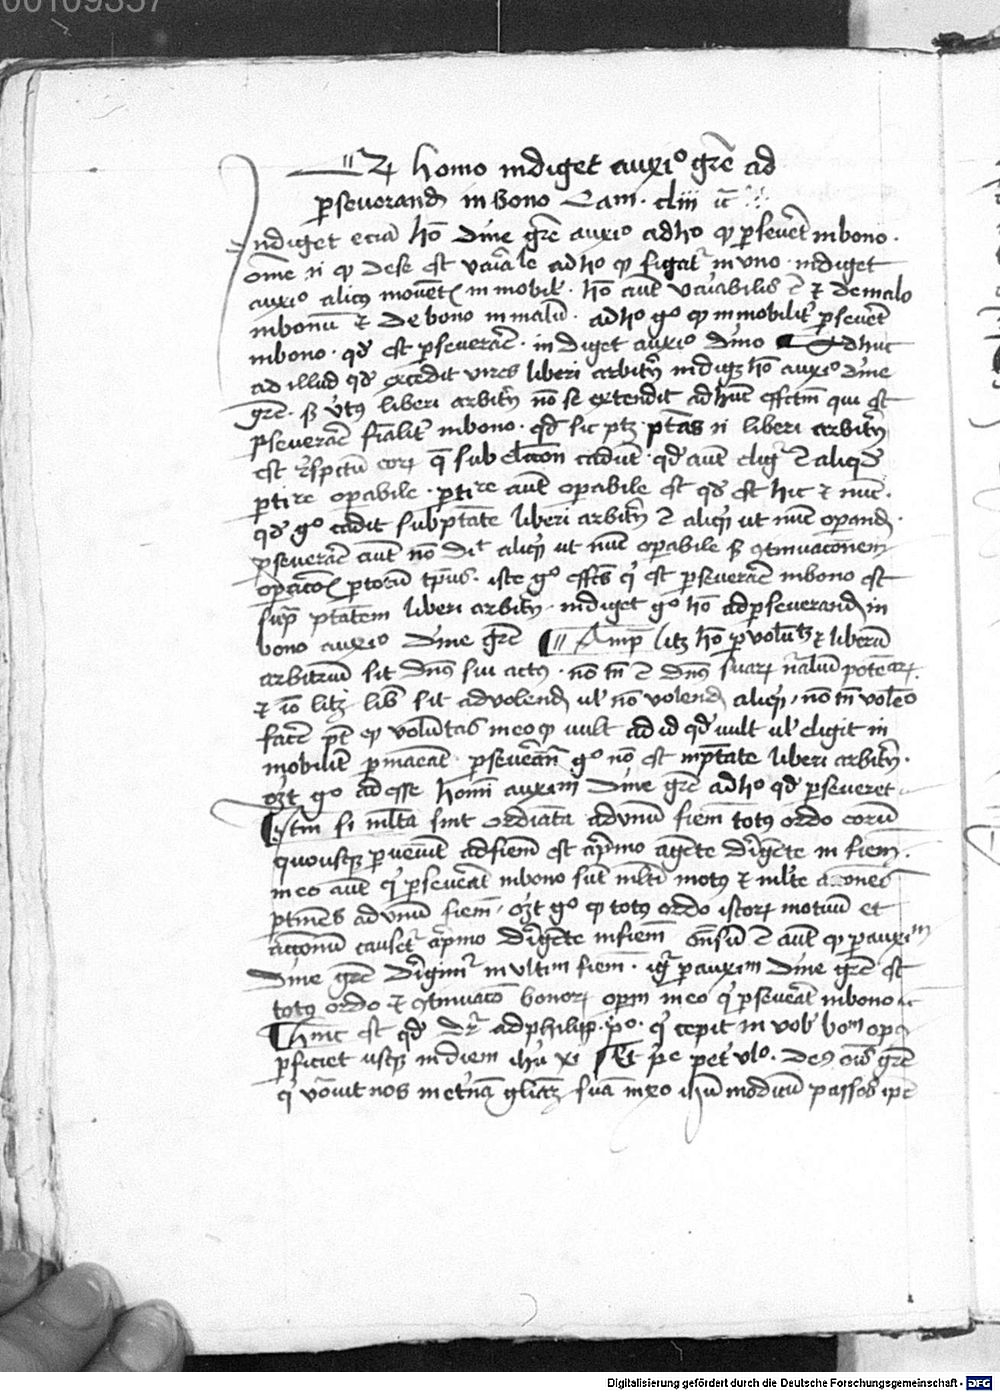 00109357
Qd homo indiget auxio gre ad
pseverand in bono Cam. cliii
Indiget eciam ho dine gre auxio ad ho qd psevet in bono.
Ome n qd de se est vaiale ad ho qd figat in uno indiget
auxio alicus movetis immobil. ho aut vaiabilis e et de malo
in bonu et de bono in malu. ad ho go qd immobilit psevet
in bono. qd est pseverare. indiget auxio dino Adhuc
ad illud qd excedit vires liberi arbitrii indiget ho auxio dine
gre. s vtus liberi arbitrii no se extendit ad huc effctm qui est
pseverare finalit in bono. qd sic ptz ptas n liberi arbitrii
est respctu eor q sub elccion cadut. qd aut eligr e aliqd
pticre opabile. pticre aut opabile est qd est hic et nuc.
qd go cadit sub ptate liberi arbitrii e aliqd ut nuc opand.
pseverare aut no dit aliqd ut nuc opabile s otinuacionem
opacois ptoru tpus. iste go effcs qui est pseverare in bono est
sup ptatem liberi arbitrii. indiget go ho ad pseverand in
bono auxio dine gre Amp litz ho p volutz et liberu
arbitrium sit dns sui actus. no tn e dns suar nalium potecar.
et io litz lib sit ad volend ul no volend aliqd, no tn voledo
facere pt qd voluntas in eo qd vult ad id qd vult ul eligit in
mobilit pmaeat. pseveracia go no est in ptate liberi arbitrii.
ozt go adesse homi auxim dine gre ad ho qd pseveret
Itm si mlta sint ordiata ad unu fiem totus ordo eoru
quousq pvenit ad fiem est a pmo agete dirigete in fiem.
in eo aut qui pseveat in bono sut mlti motus et mlte acciones
ptines ad unu fiem, ozt go qd totus ordo istor motuu et
accionu causet a pmo dirigete in fiem onsu e aut qd p auxim
dine gre dirigimr in ultim fiem. igr p auxim dine gre est
totus ordo et otinuaco bonor opm in eo qui pseveat in bono
Hinc est qd dr ad philipp. po. qui cepit in vob bom opo
pficiet usq in diem ihu xi Et pe pet vlo. deus ois gre
qui vocavit nos in etna gliaz sua in xo ihu modicu passos ipe
Digitalisierung gefördert durch die Deutsche Forschungsgemeinschaft - DFG